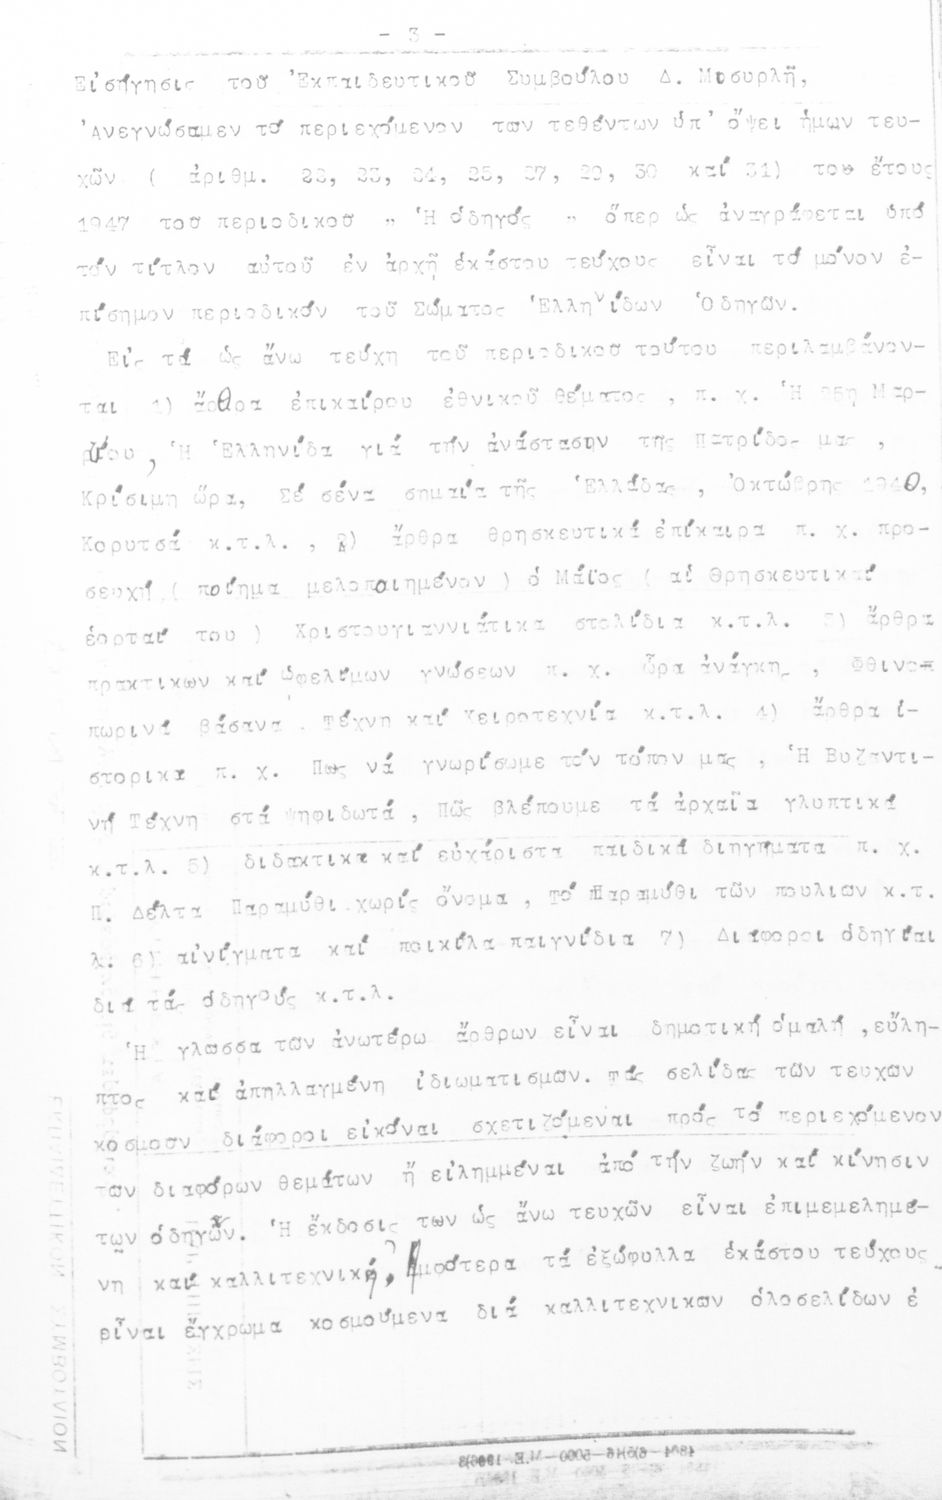 - 3 -
Εἰσήγησις τοῦ Ἐκπαιδευτικοῦ Συμβούλου Δ. Μοσυρλῆ,
Ἀνεγνώσαμεν τό περιεχόμενον των τεθέντων ὑπ' ὄψει ἡμων τευ-
χῶν ( ἀριθμ. 22, 23, 24, 25, 27, 29, 30 καί 31) του ἔτους
1947 τοῦ περιοδικοῦ " Ἡ ὁδηγός " ὅπερ ὡς ἀναγράφεται ὑπό
τόν τίτλον αὐτοῦ ἐν ἀρχῇ ἑκάστου τεύχους εἶναι τό μόνον ἐ-
πίσημον περιοδικόν τοῦ Σώματος Ἑλληνίδων Ὁδηγῶν.
Εἰς τά ὡς ἄνω τεύχη τοῦ περιοδικοῦ τούτου περιλαμβάνον-
ται 1) ἄρθρα ἐπικαίρου ἐθνικοῦ θέματος , π. χ. Ἡ 25η Μαρ-
τίου , Ἡ Ἑλληνίδα γιά τήν ἀνάστασιν της Πατρίδος μας ,
Κρίσιμη ὥρα, Σέ σένα σημαία τῆς Ἑλλάδας , Ὀκτώβρης 1940,
Κορυτσά κ.τ.λ. , 2) ἄρθρα θρησκευτικά ἐπίκαιρα π. χ. προ-
σευχή ( ποίημα μελοποιημένον ) ὁ Μάϊος ( αἱ θρησκευτικαί
ἑορταί του ) Χριστουγιαννιάτικα στολίδια κ.τ.λ. 3) ἄρθρα
πρακτικων καί ὠφελίμων γνώσεων π. χ. ὥρα ἀνάγκης , Φθινοπ
πωρινά βάσανα . Τέχνη καί Χειροτεχνία κ.τ.λ. 4) ἄρθρα ἱ-
στορικα π. χ. Πως νά γνωρίσωμε τόν τόπον μας , Ἡ Βυζαντι-
νή Τέχνη στά ψηφιδωτά , Πῶς βλέπουμε τά ἀρχαῖα γλυπτικά
κ.τ.λ. 5) διδακτικα καί εὐχάριστα παιδικά διηγήματα π. χ.
Π. Δέλτα Παραμύθι χωρίς ὄνομα , τό Παραμύθι τῶν πουλιων κ.τ.
λ. 6) αἰνίγματα καί ποικίλα παιγνίδια 7) Διαφοροι ὁδηγίαι
διά τάς ὁδηγούς κ.τ.λ.
Ἡ γλωσσα τῶν ἀνωτέρω ἄρθρων εἶναι δημοτική ὁμαλή ,εὔλη-
πτος καί ἀπηλλαγμένη ἰδιωματισμων. Τάς σελίδας τῶν τευχων
κοσμουν διάφοροι εἰκόναι σχετιζόμεναι πρός τό περιεχόμενον
των διαφόρων θεμάτων ἤ εἰλημμέναι ἀπό τήν ζωήν καί κίνησιν
των ὁδηγῶν. Ἡ ἔκδοσις των ὡς ἄνω τευχῶν εἶναι ἐπιμεμελημέ-
νη καί καλλιτεχνική, Ἀμφότερα τά ἐξώφυλλα ἑκάστου τεύχους
εἶναι ἔγχρωμα κοσμούμενα διά καλλιτεχνικων ὁλοσελίδων ἐ
ΕΚΠΑΙΔΕΥΤΙΚΟΝ ΣΥΜΒΟΥΛΙΟΝ